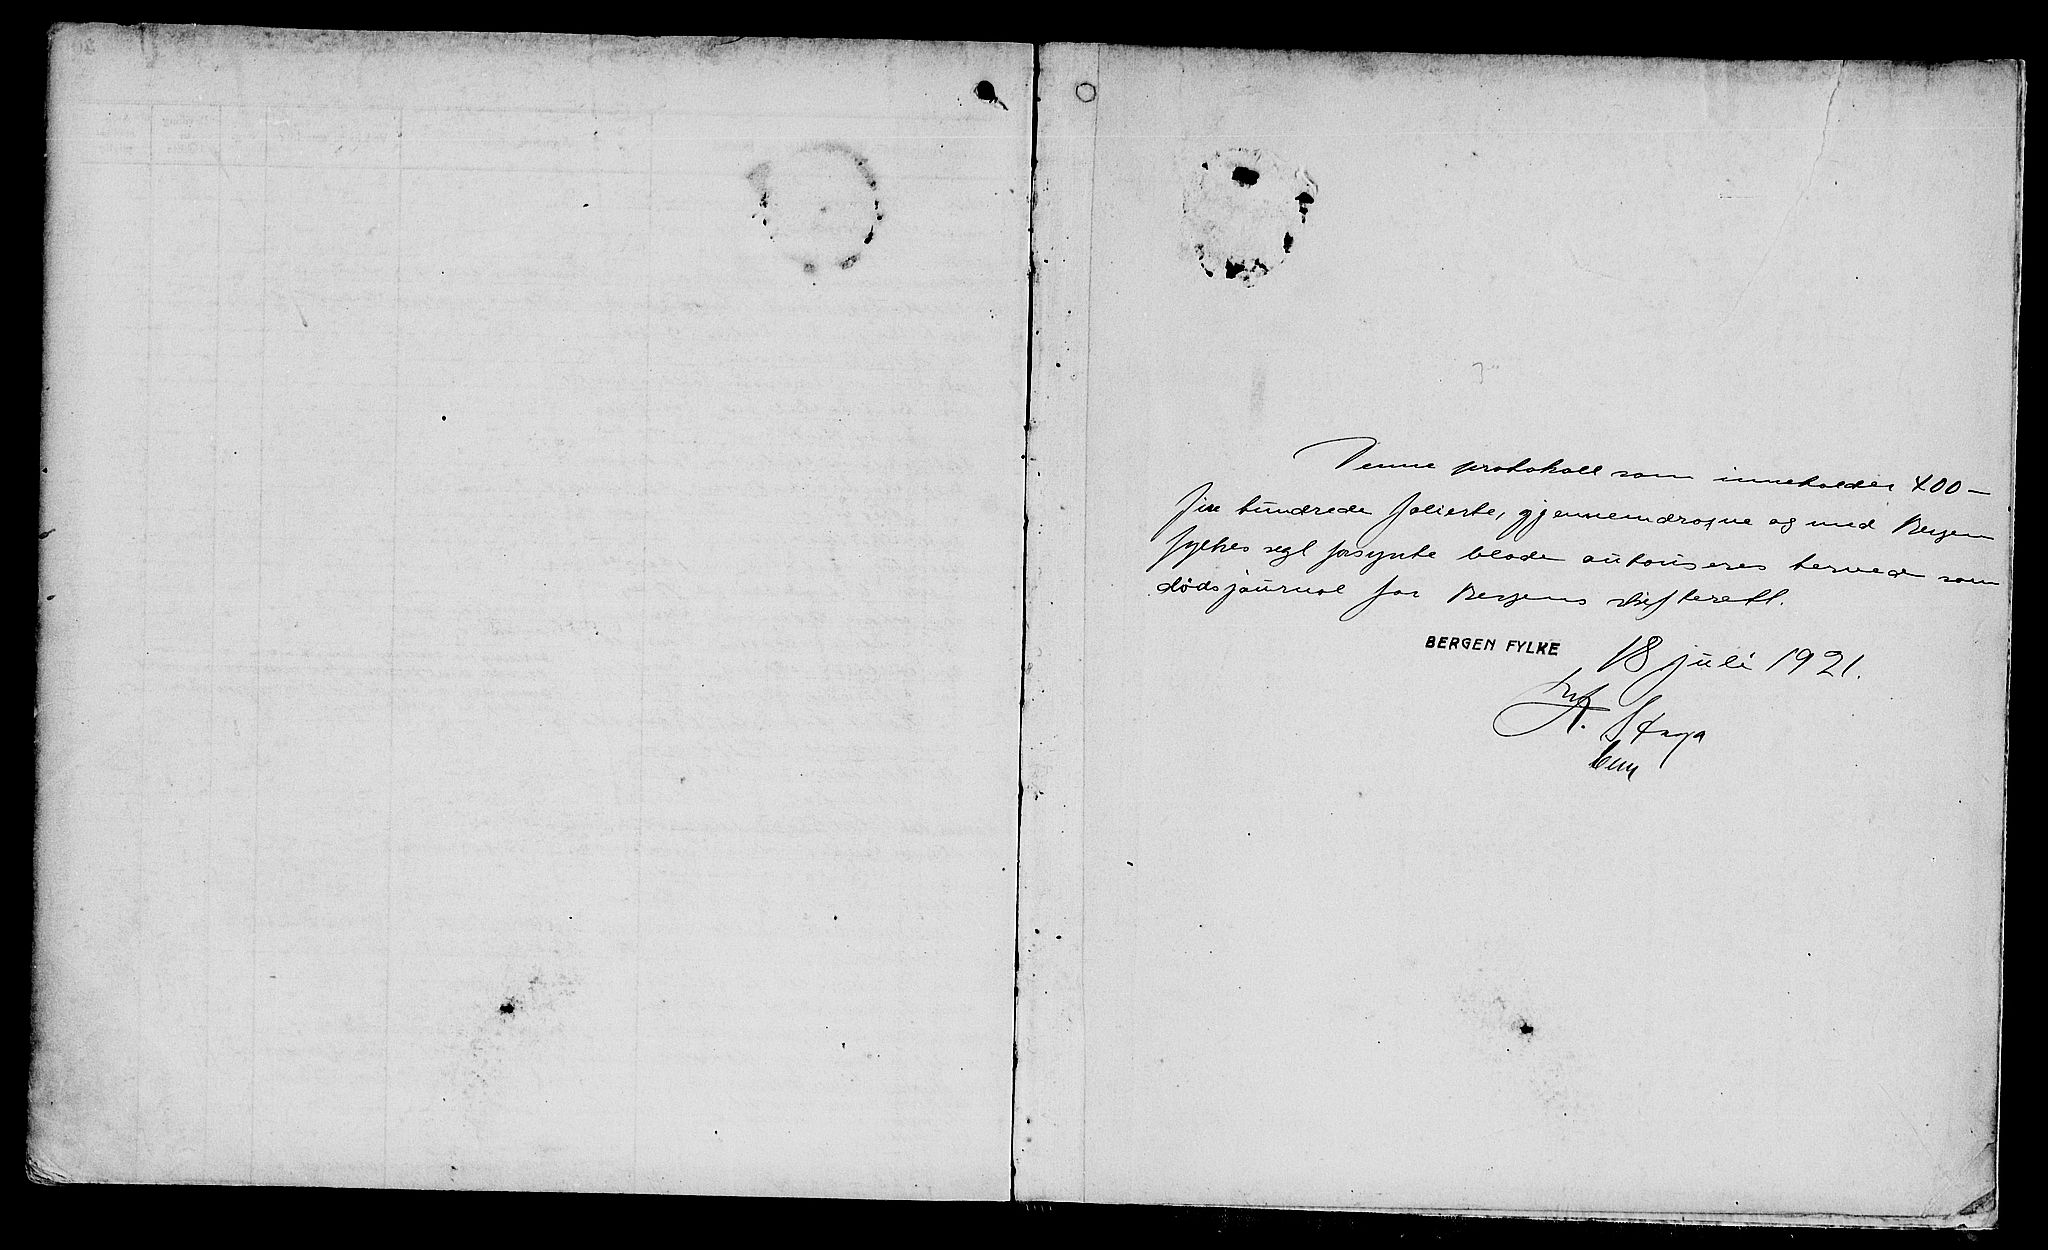 Denne protokoll som inneholder 400 –
fire hundrede folierte, gjennemdragne og med Bergen
fylkes segl forsynte blade autoriseres herved som
dødsjournal for Bergens skifterett.
BERGEN FYLKE 18 juli 1921.